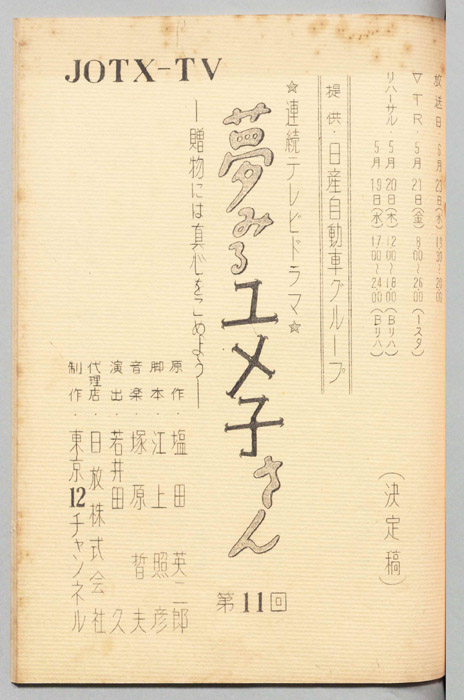 JOTX-TV
放送日・5月23日(水) 19:30~20:00
▽TR・5月21日(金) 8:00~26:00 (1スタ)
リハーサル・5月20日(木) 12:00~18:00 (Bリハ)
5月19日(水) 17:00~24:00 (Bリハ)
(決定稿)
提供・日産自動車グループ
☆連続テレビドラマ☆
夢みるユメ子さん
第11回
―贈物には真心をこめよう―
原作・塩田英二郎
脚本・江上照彦
音楽・塚原晢夫
演出・若井田久
代理店・日放株式会社
制作・東京12チャンネル